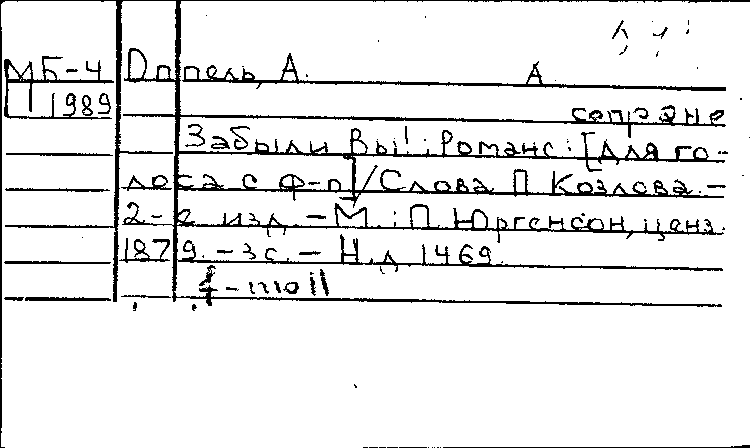 МБ-4 Оппель, А. А
П 1989
сопрано
Забыли Вы!: Романс: [Для го-
лоса с ф-п]/Слова П Козлова.-
2-е изд.-М.: П. Юргенсон, ценз.
1879.-3с.-Н.д. 1469.
f-moll